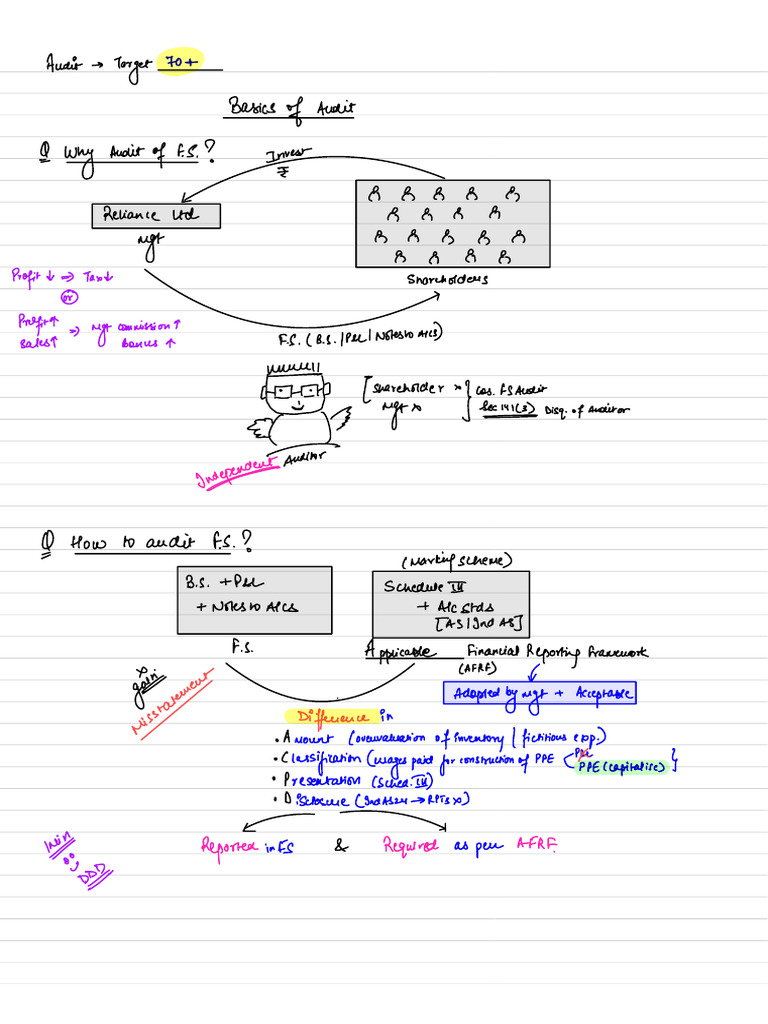 Audit → Target 70+
Basics of Audit
Q Why Audit of F.S.?
Invest
₹
Reliance Ltd
Mgt
Shareholders
Profit ↓ ⇒ Tax ↓
or
Profit ↑
Sales ↑ ⇒ Mgt commission ↑
Bonus ↑
F.S. (B.S. | P&L | Notes to A/cs)
[ Shareholder ×
Mgt × } Cos. FS Audit
Sec 141(3) Disq. of Auditor
Independent Auditor
Q How to audit F.S.?
(Marking Scheme)
B.S. + P&L
+ Notes to A/cs
Schedule III
+ A/c Stds
[AS | Ind AS]
F.S.
Applicable Financial Reporting Framework
(AFRF)
gain
Misstatement
Adopted by mgt + Acceptable
Difference in
• Amount (overvaluation of inventory | fictitious exp.)
• Classification (wages paid for construction of PPE P&L
PPE (capitalise) }
• Presentation (Sched. III)
• Disclosure (Ind AS 24 → RPTs ×)
Reported in F.S & Required as per AFRF.
DDD